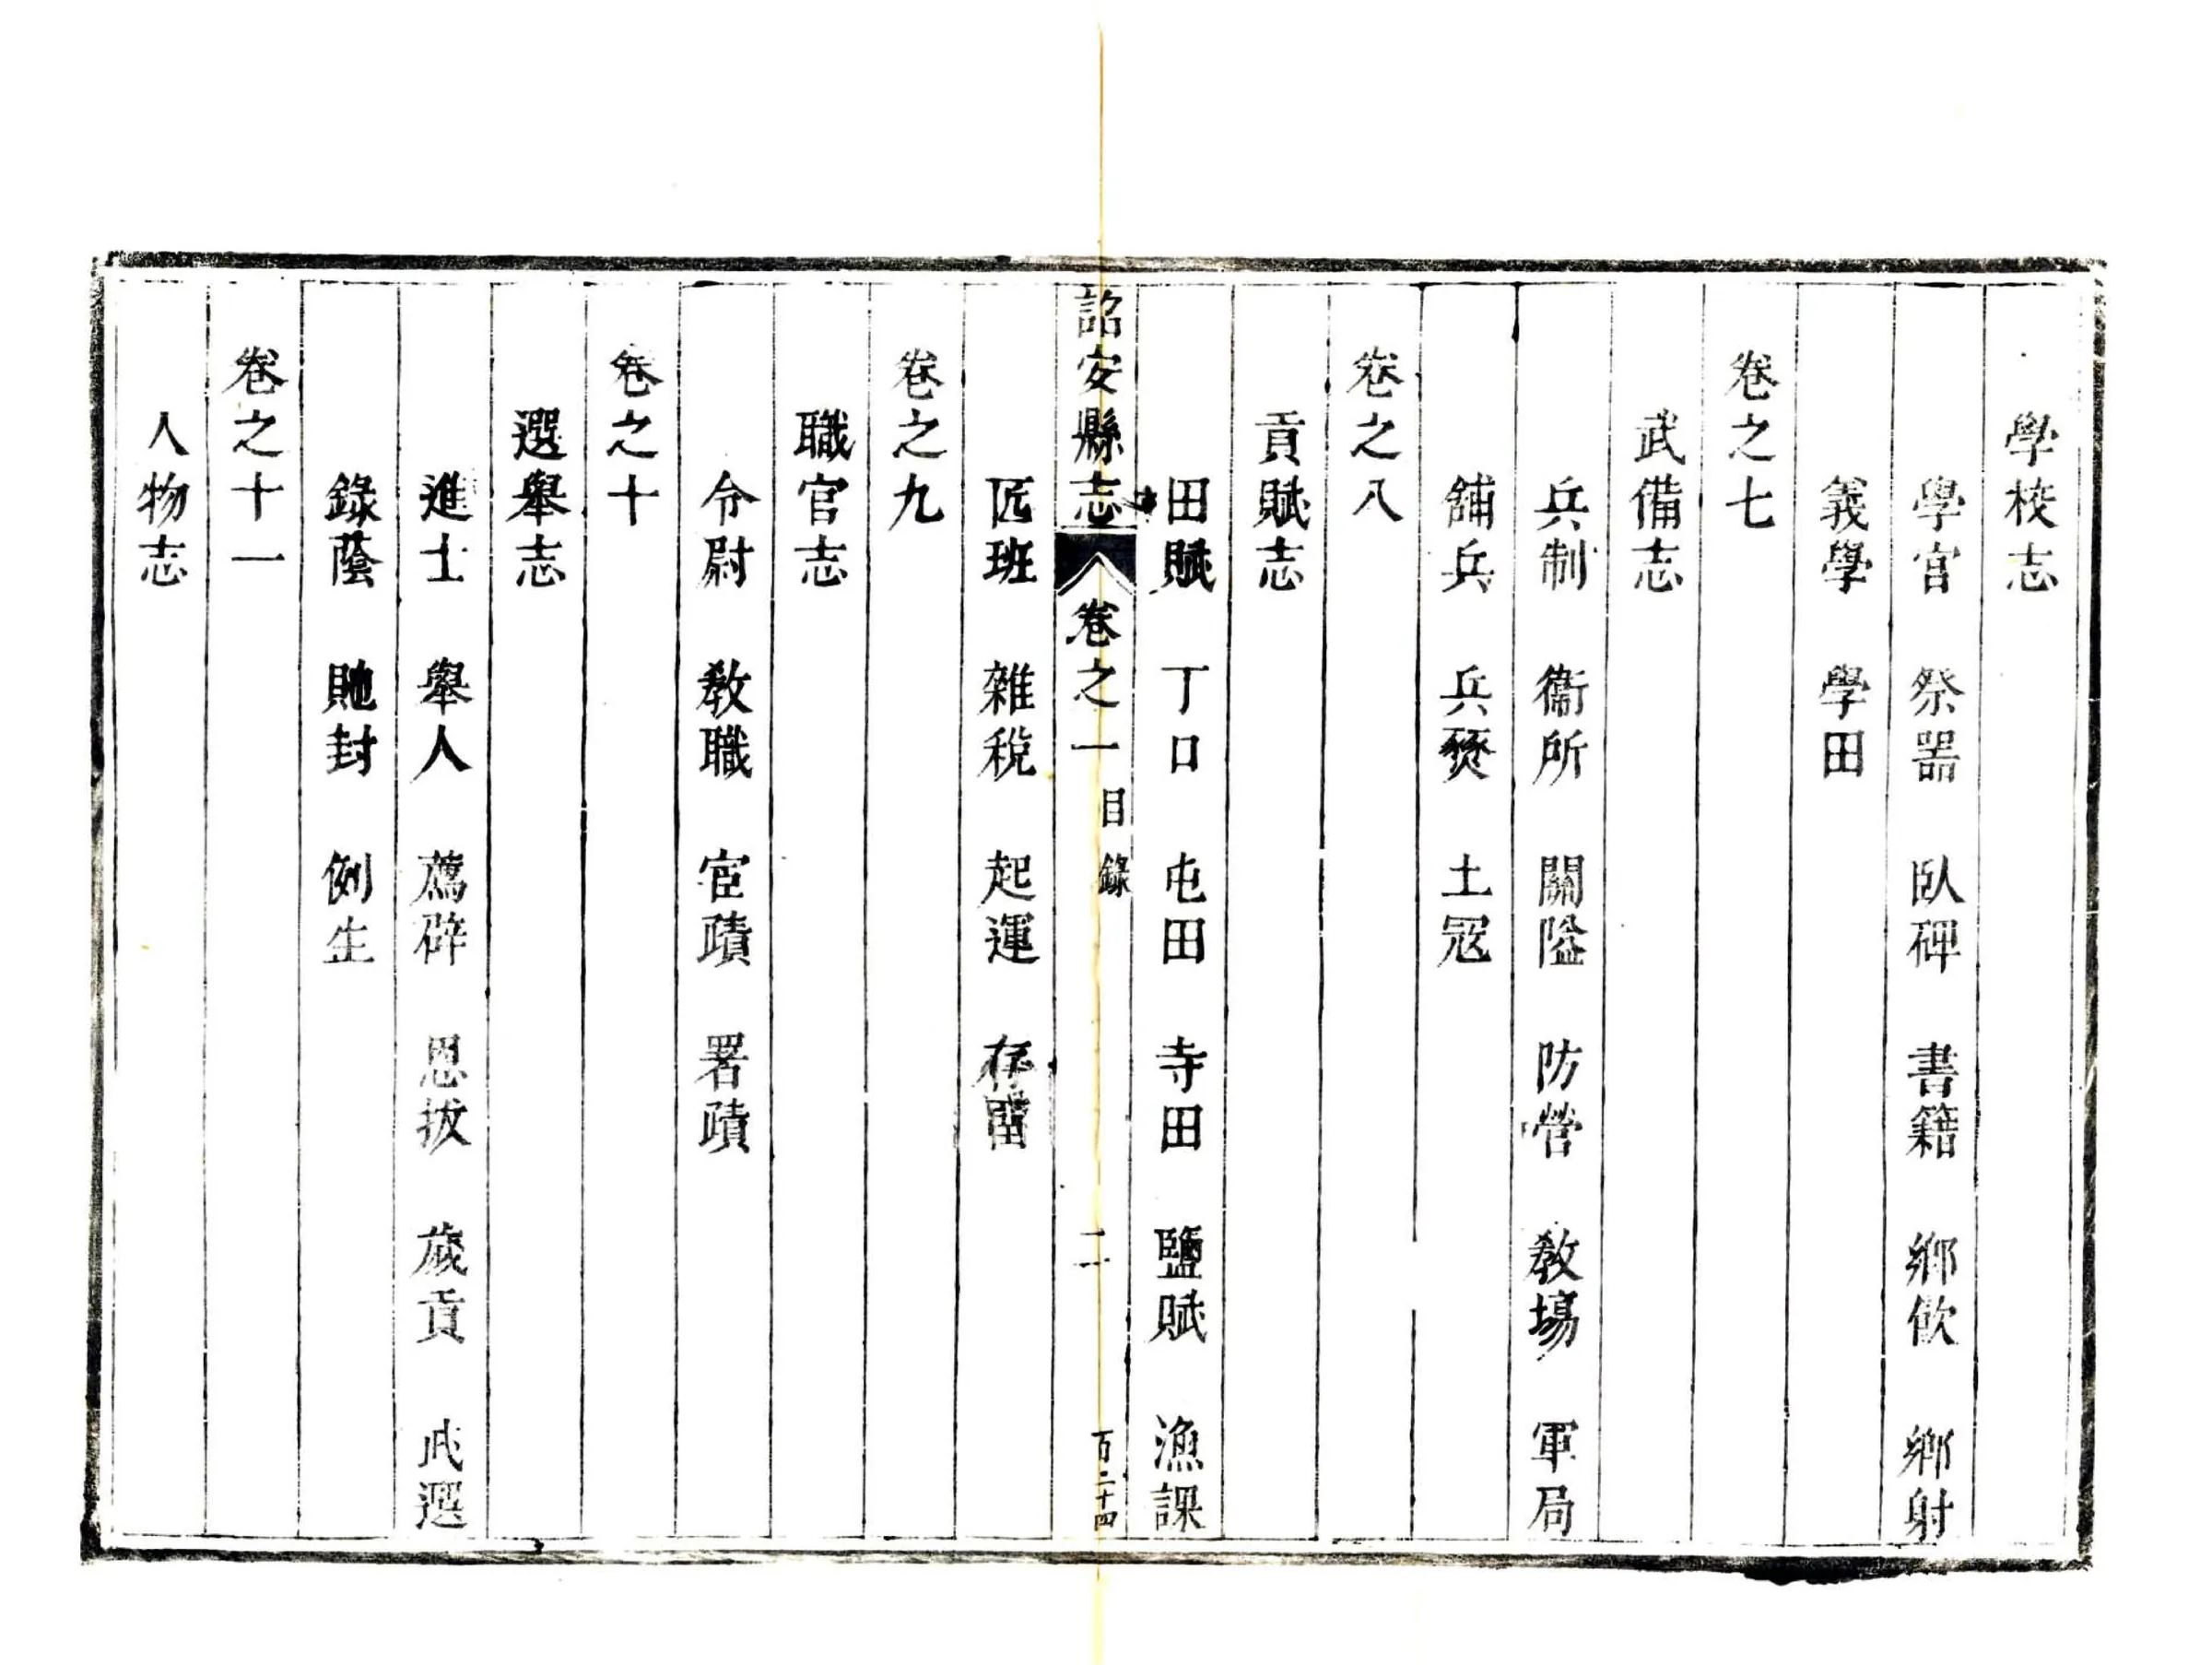 學校志
學宮　祭器　臥碑　書籍　鄉飲　鄉射
義學　學田
卷之七
武備志
兵制　衞所　關隘　防營　教塲　軍局
舖兵　兵燹　土冦
卷之八
貢賦志
田賦　丁口　屯田　寺田　鹽賦　漁課
詔安縣志　卷之一　目錄　二　百二十四
匠班　雜稅　起運　存留
卷之九
職官志
令尉　教職　宦蹟　署蹟
卷之十
選舉志
進士　舉人　薦辟　恩拔　歲貢　武選
錄蔭　貤封　例生
卷之十一
人物志